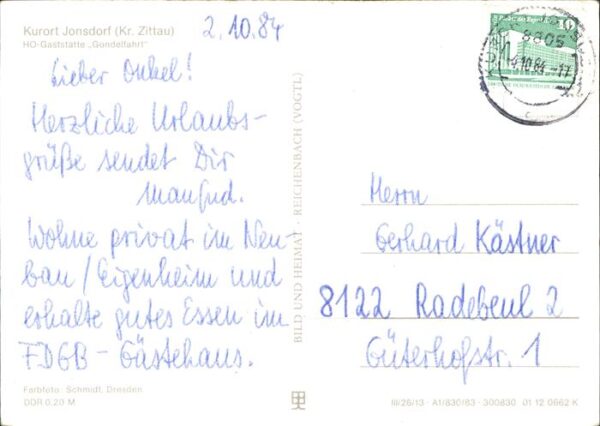 Kurort Jonsdorf (Kr. Zittau)
HO-Gaststätte „Gondelfahrt"
2.10.84
Lieber Onkel!
Herzliche Urlaubs-
grüße sendet Dir
Manfred.
Wohne privat im Neu-
bau/Eigenheim und
erhalte gutes Essen im
FDGB-Gästehaus.
Farbfoto: Schmidt, Dresden
DDR 0,20 M
BILD UND HEIMAT · REICHENBACH (VOGTL)
10
8805
4.10.84.-17
Herrn
Gerhard Kästner
8122 Radebeul 2
Güterhofstr. 1
III/26/13 · A1/830/83 · 300830 01 12 0662 K